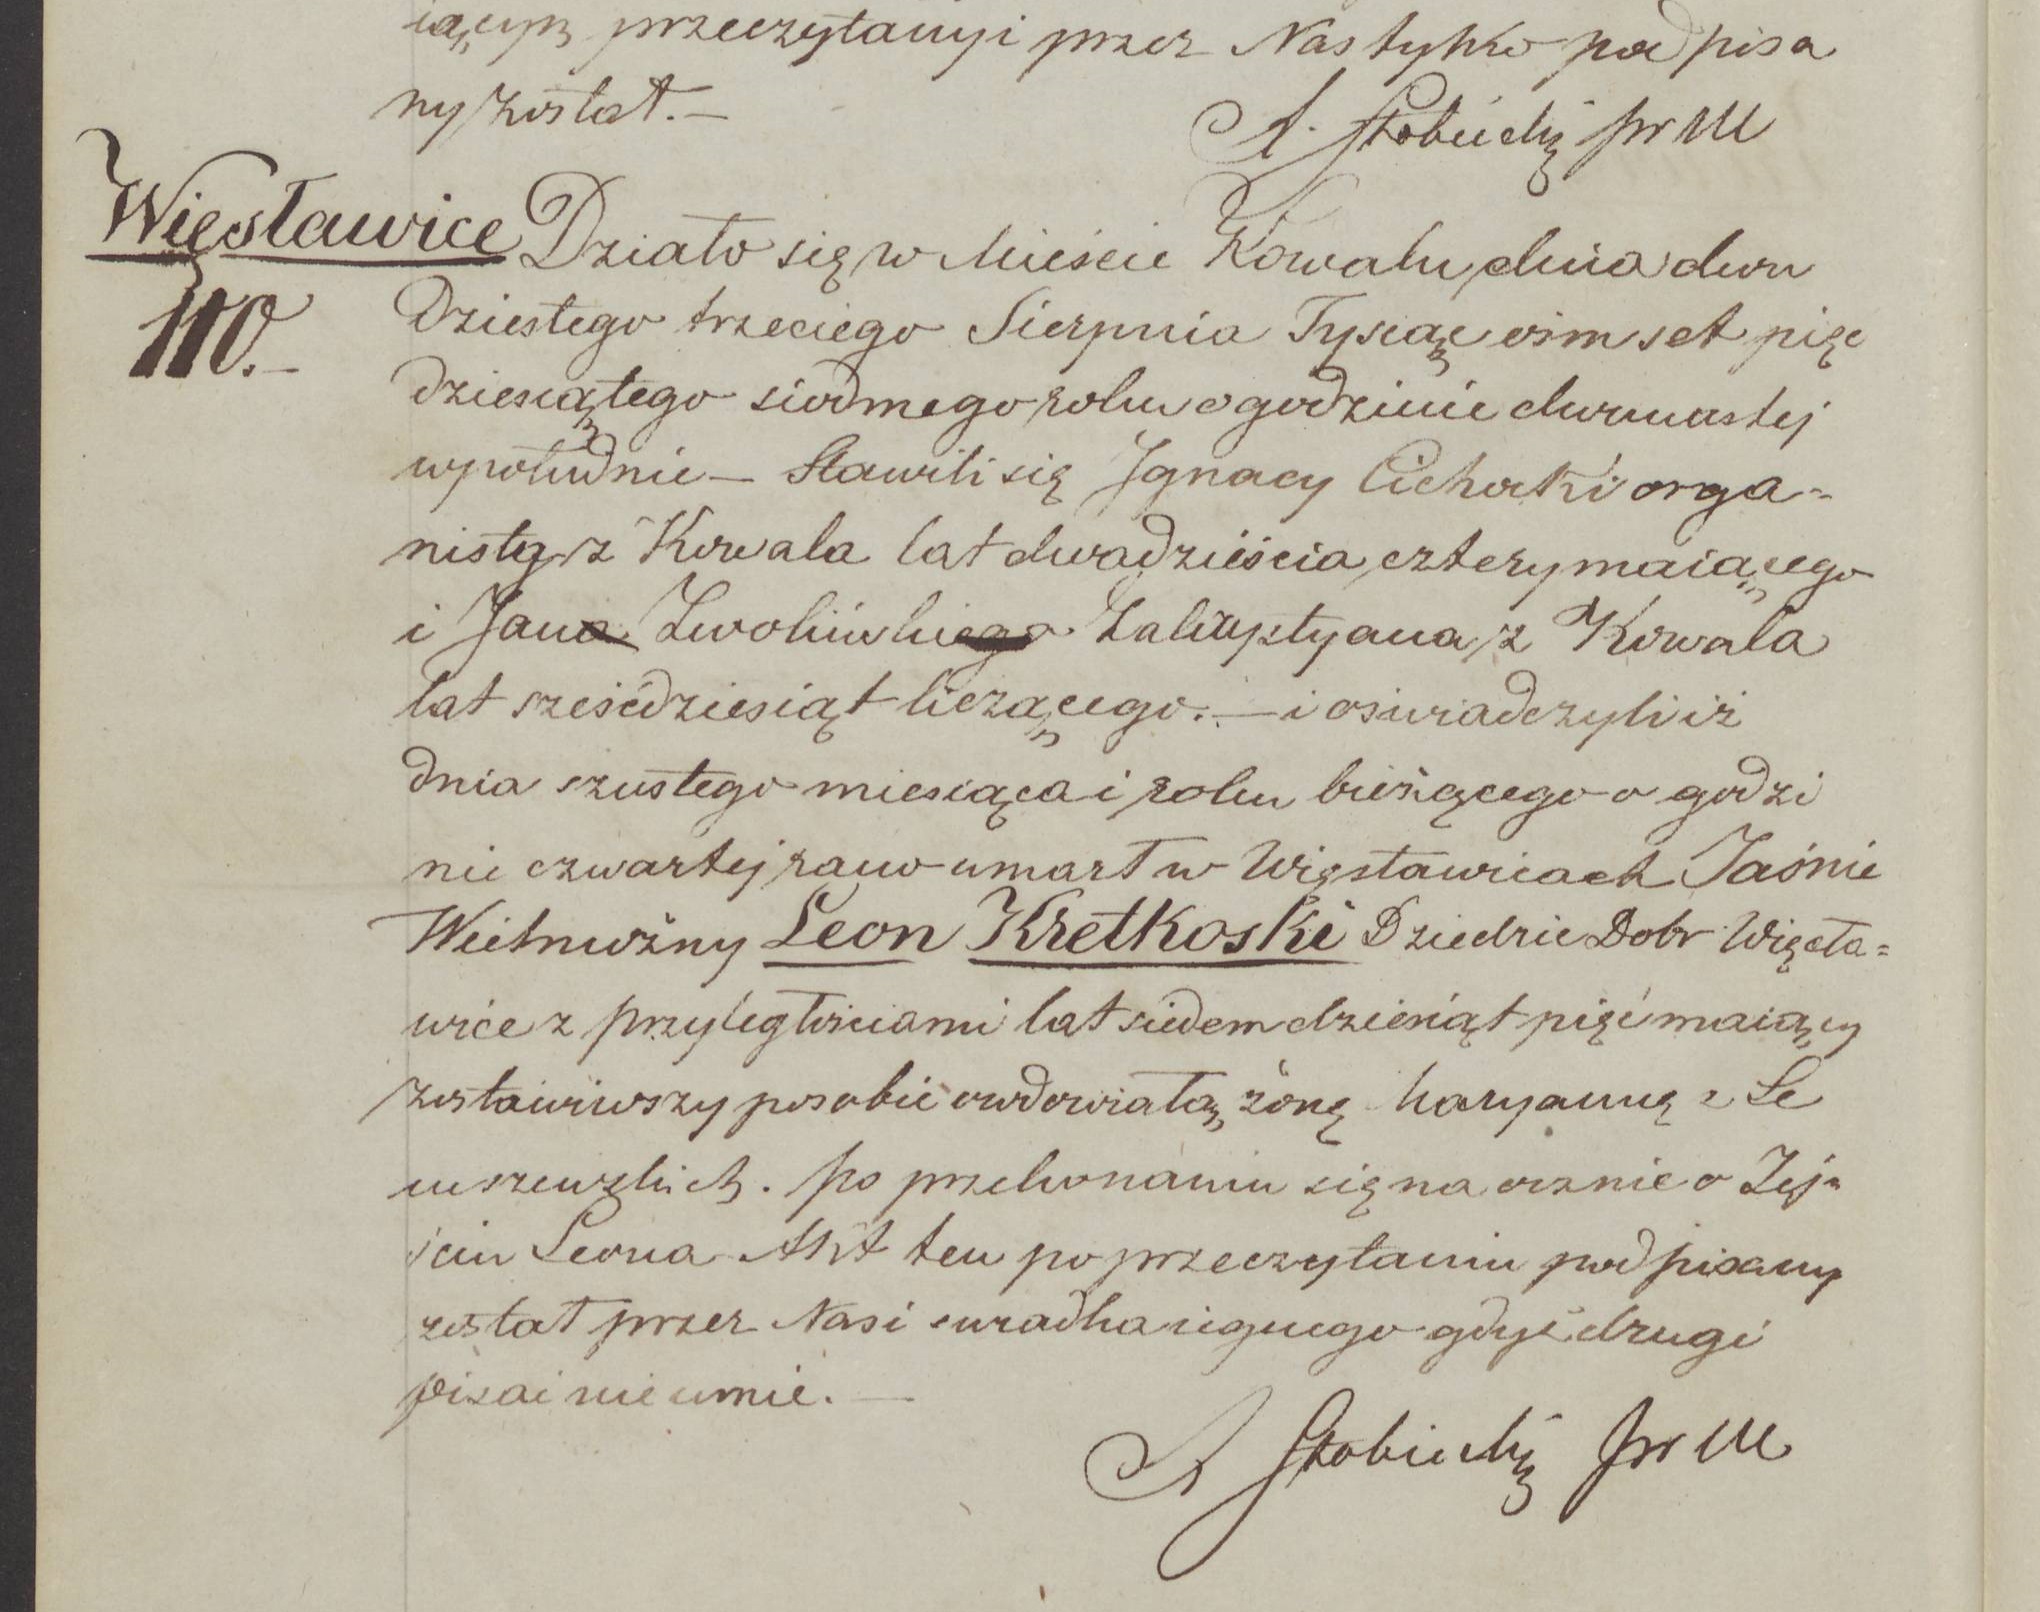 iącym przeczytany i przez Nas tylko podpisa
ny został.—
A. Słobiecki pr M
Więsławice Działo się w Mieście Kowalu dnia dwu
110.— dziestego trzeciego Sierpnia Tysiąc ośmset pięć
dziesiątego siodmego roku o godzinie dwunastej
wpołudnie — Stawili się Ignacy Cichocki orga=
nisty z Kowala lat dwadzieścia cztery maiącego
i Jana Zwolińskiego Zakrystyana z Kowala
lat sześćdziesiąt liczącego. — i oswiadczyli iż
dnia szustego miesiąca i roku bieżącego o godzi
nie czwartej rano umarł w Więsławicach Jaśnie
Wielmożny Leon Kretkoski Dziedzic Dobr Więsła=
wice z przyległościami lat siedemdziesiąt pięć maiący
zostawiwszy posobie owdowiałą żonę Maryannę z Le
. Po przekonaniu się na ocznie o Zej=
ściu Leona Akt ten po przeczytaniu podpisany
został przez Nas i swiadka iednego gdyż drugi
pisać nie umie. —
A Słobiecki pr M